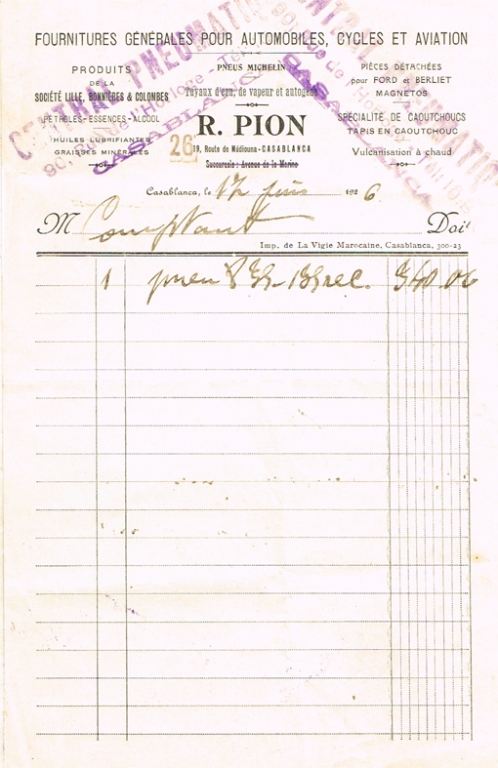 FOURNITURES GÉNÉRALES POUR AUTOMOBILES, CYCLES ET AVIATION
PRODUITS
DE LA
SOCIÉTÉ LILLE, BONNIÈRES & COLOMBES
PÉTROLES-ESSENCES-ALCOOL
HUILES LUBRIFIANTES
GRAISSES MINÉRALES
PNEUS MICHELIN
Tuyaux d'eau, de vapeur et autogène
R. PION
26
19, Route de Médiouna-CASABLANCA
Succursale : Avenue de la Marine
PIÈCES DÉTACHÉES
pour FORD et BERLIET
MAGNÉTOS
SPÉCIALITÉ DE CAOUTCHOUCS
TAPIS EN CAOUTCHOUC
Vulcanisation à chaud
CENTRAL PNEUMATIC
CASABLANCA
CASABLANCA
Casablanca, le 12 juin 1926
M Comptant Doit
Imp. de La Vigie Marocaine, Casablanca, 300-23
1 pneu 835-135 rec. 340.06